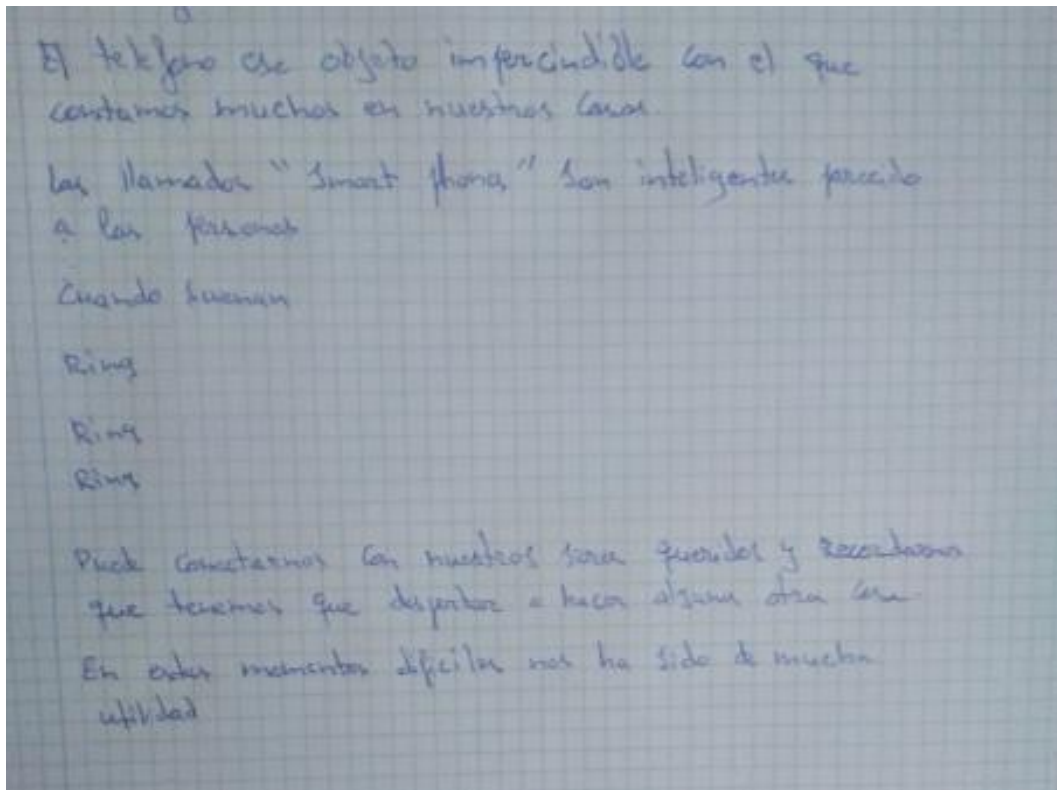 El telefono ese objeto impercindible con el que
contamos muchos en nuestras casas.
Los llamados "Smart phones" son inteligentes parecido
a las personas
Cuando suenan
Ring
Ring
Ring
Puede conectarnos con nuestros seres queridos y recordarnos
que tenemos que despertar o hacer alguna otra cosa
En estos momentos dificiles nos ha sido de mucha
utilidad